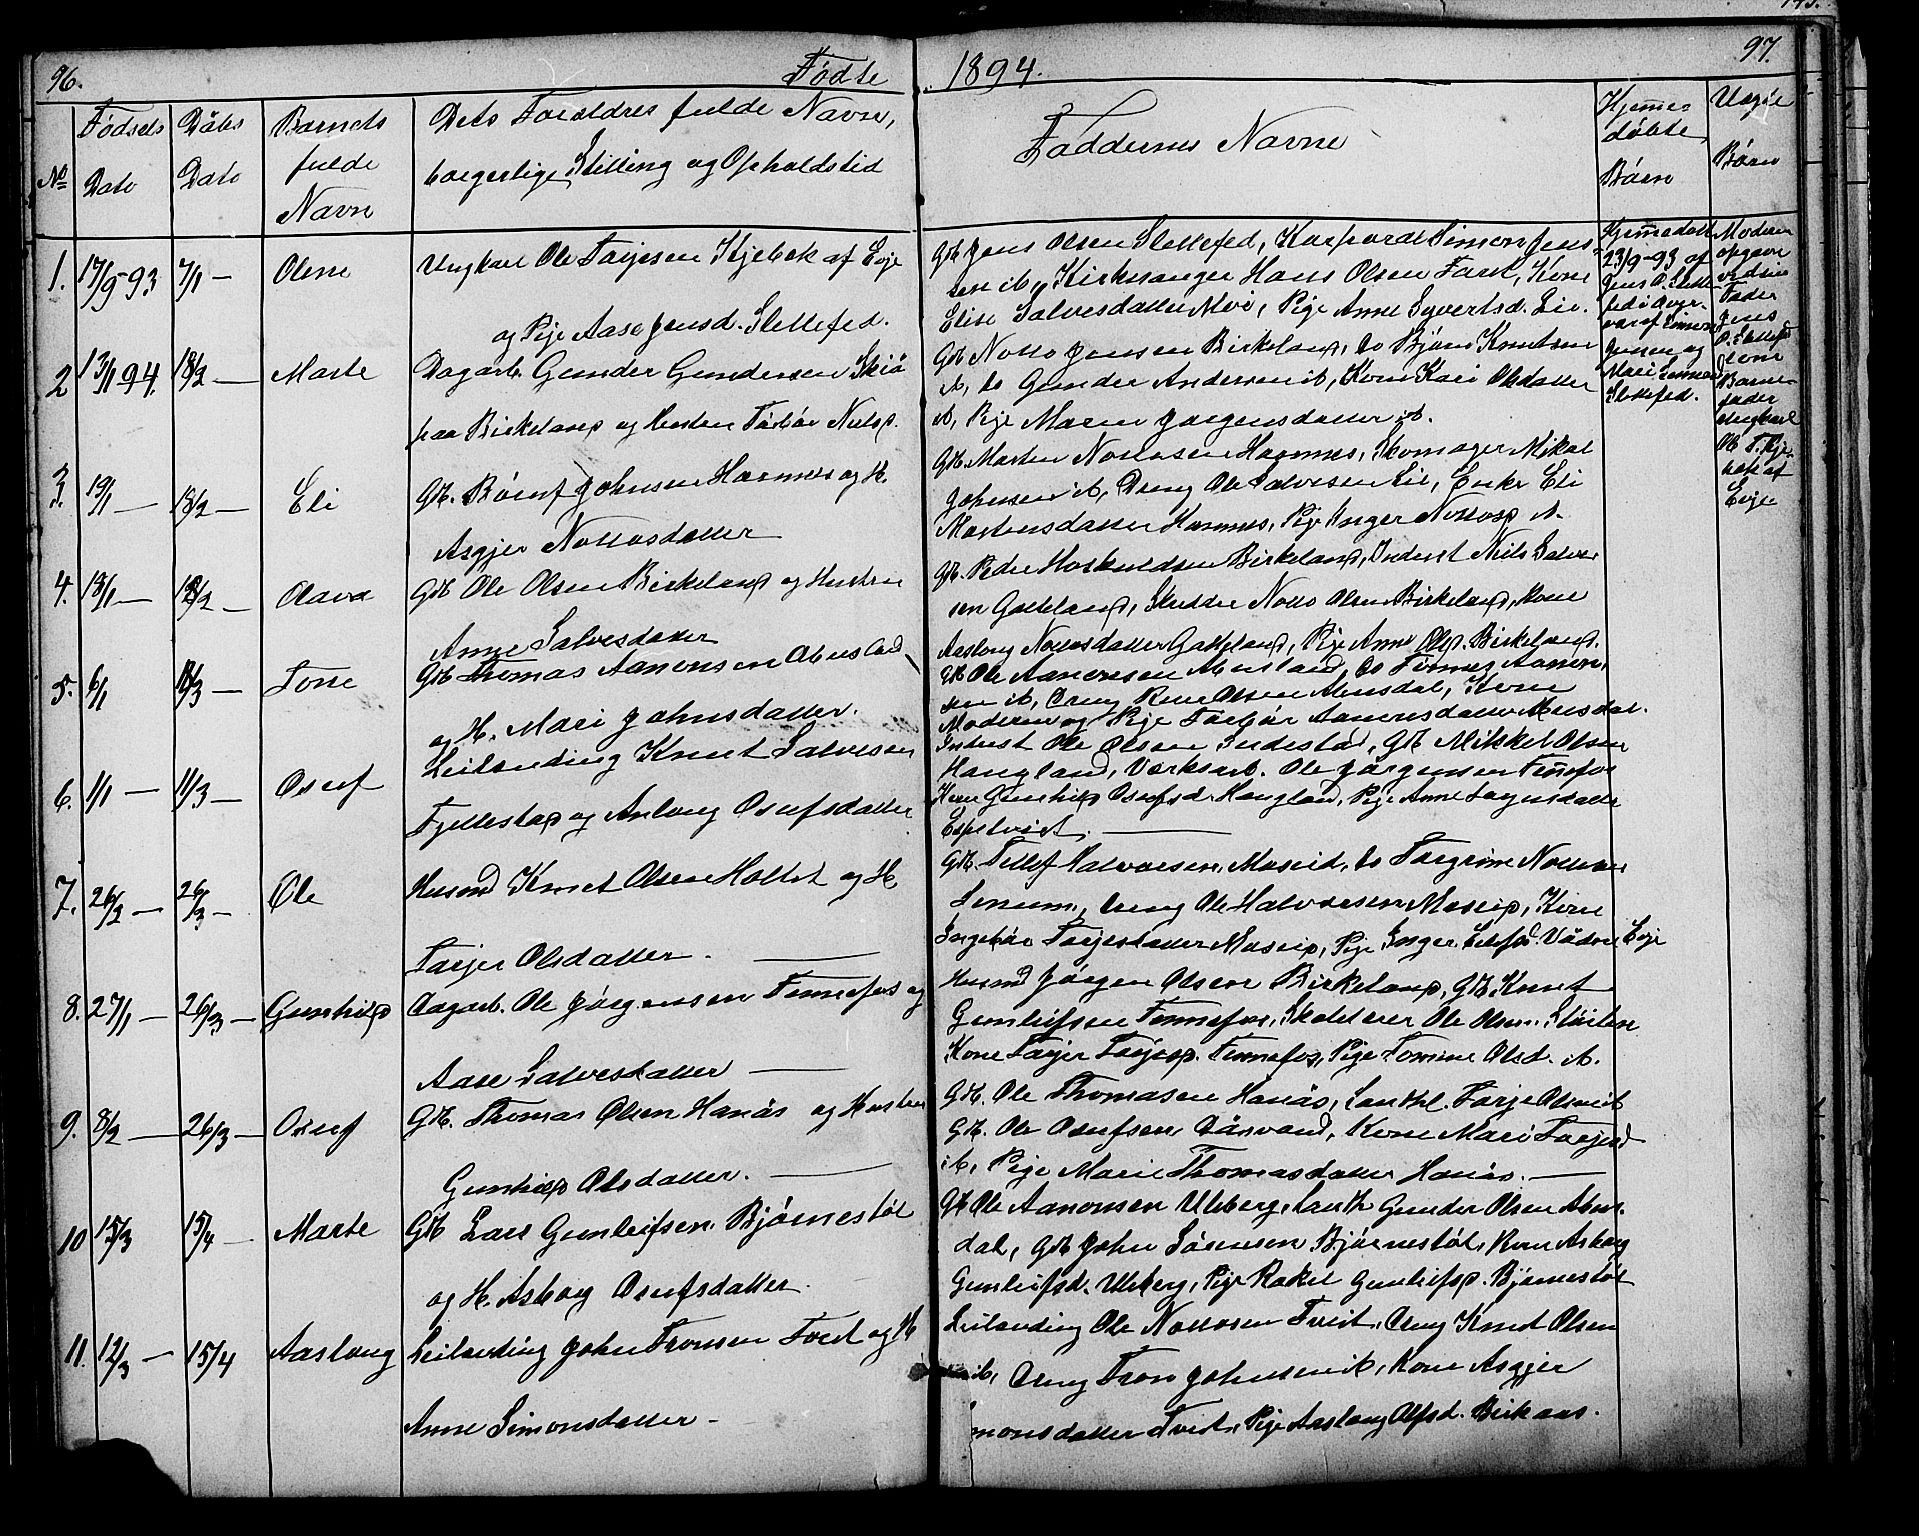 96.
Fødte
1894.
97.
No
Fødsels Dato
Dåbs Dato
Barnets fulde Navn
Dets Forældres fulde Navn,
borgerlige Stilling og Opholdstid
Faddernes Navne
Hjemmedøbte Børn
Uægte Børn
1. 17/9-93 7/1 — Olene
Ungkarl Ole Tarjesen Kjebek af Evje
og Pige Aase Jensd. Slettefed.
Gb Jens Olsen Slettefed, Simon Jen-
sen ib, Kirkesanger Hans Olsen Kone
Elise Salvesdatter Moi, Pige Anne Syvertsd. Lie.
Hjemmedøbt
23/9-93 af
Jens O. Slette-
fed i Over-
vær af Simon
Jensen og
Mari
Slettefed.
Moderen
opgav
ved sin
Fader
Jens
O. Slettefed
som
Barne-
fader
Ungkarl
Ole T. Kje-
bek af
Evje
2 13/1 94. 18/2 — Marte
Dagarb. Gunder Gundersen
paa Birkeland og Hustru Torbør Notto
Gb Notto Jensen Birkeland, do Bjørn Knutsen
ib, do Gunder Andersen ib, Kone Kari Olsdatter
ib, Pige Maren Jørgensdatter ib.
3. 19/1 — 18/2 — Eli
Gb. Johnsen Hannes og H.
Asgjer Nottosdatter
Gb. Marten Nottosen Hannes, Skomager Mikal
Johnsen ib, Dreng Ole Salvesen Lie, Enke Eli
Martensdatter Hannes, Pige Inger Nottosd ib.
4. 18/1 — 18/2 — Olava
Gb Ole Olsen Birkeland og Hustru
Anne Salvesdatter
Gb. Birkeland, Inderst Nils Salve-
sen Gakkeland, Notto Olsen Birkeland, Kone
Aaslaug Nottosdatter Gakkeland, Pige Anne Olsd. Birkeland.
5. 6/1 /3 — Tone
Gb Thomas Aanonsen Abusland
og H. Mari Johnsdatter.
Gb Ole Aanonsen Abusland, do Tønnes Aanon-
sen ib, Dreng Olsen Abusdal, Kone
Moderen og Pige Torbør Aanonsdatter Abusdal.
6. 1/1 — 11/3 — Osuf
Leilending Knut Salvesen
Fjellestad og Aslaug Osufsdatter
Inderst Ole Olsen Gb Mikkel Olsen
Haugland, Værksarb. Ole Jørgensen Fennefos
Kone Gunhild Osufsd. Haugland, Pige Anne Jørgensdatter
Espetveit.
7. 26/2 — 26/3 — Ole
Husmd Knut Olsen Holtet og H
Tarjer Olsdatter. —
Gb. Tellef Halvorsen Moseid, do Torgrim
Senum, Dreng Ole Halvorsen Moseid, Kone
Ingebør Tarjesdatter Moseid, Pige Inger Evje
8. 27/1 — 26/3 — Gunhild
Dagarb. Ole Jørgensen Fennefos og
Aase Salvesdatter —
Husmd Jørgen Olsen Birkeland, Gb Knut
Gunleifsen Fennefos, Skolelærer Ole Olsen
Kone Tarjer Tarjesd. Fennefos, Pige Tomine Olsd. ib.
9. 8/2 — 26/3 — Osuf
Gb. Thomas Olsen Hanås og Hustru
Gunhild Olsdatter. —
Gb. Ole Thomasen Hanås, Tarje Olsen ib
Gb. Ole Osufsen Dåsvand, Kone Mari Tarjesd
ib, Pige Marie Thomasdatter Hanås. —
10 15/3 15/4 — Marte
Gb Lars Gunleifsen Bjørnestøl
og H. Asborg Osufsdatter.
Gb Ole Aanonsen Uleberg, Gunder Olsen Abus-
dal, Gb John Sørensen Bjørnestøl, Kone Asborg
Gunleifsd. Uleberg, Pige Rakel Gunleifsd. Bjørnestøl
11. 12/3 — 15/4 Aaslaug
Leilending John Tronsen Tveit og H
Anne Simonsdatter –
Leilending Ole Nottosen Tveit, Dreng Knut Olsen
ib, Dreng Tron Johnsen ib, Kone Asgjer
monsdatter Tveit, Pige Aaslaug Olsd. Birkaas.